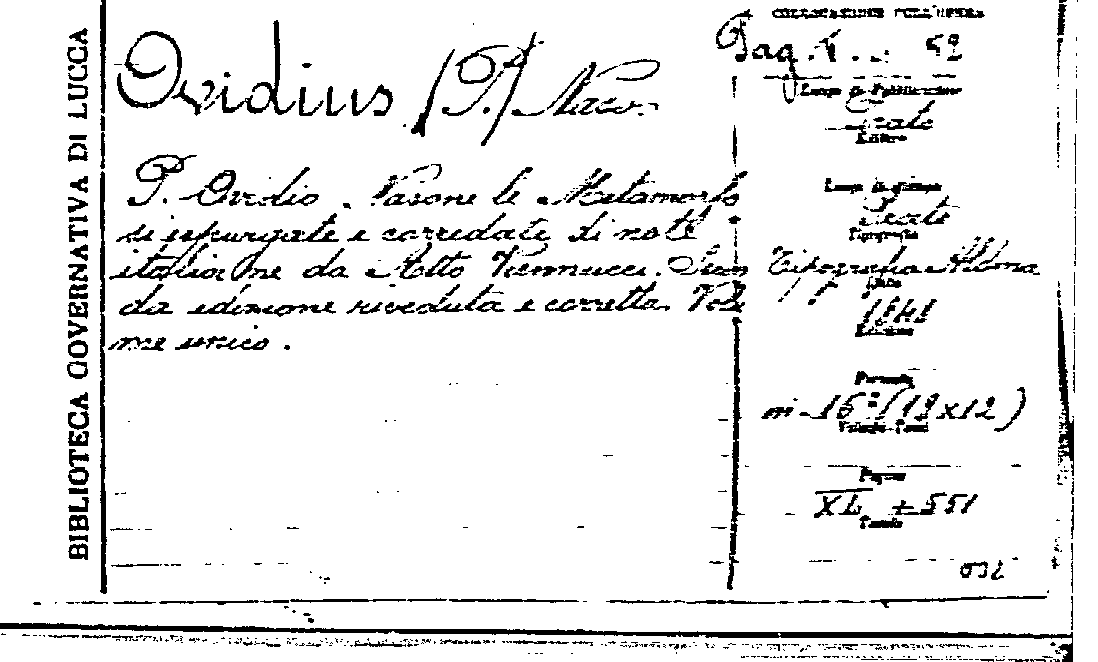 BIBLIOTECA GOVERNATIVA DI LUCCA
Ovidius /P./ Naso.
P. Ovidio Nasone le Metamorfo
si espurgate e corredate di note
italiane da Atto Vannucci. Secon
da edizione riveduta e corretta. Volu
me unico.
COLLOCAZIONE DELL'OPERA
Pag. 52
Luogo di Pubblicazione
Prato
Editore
Luogo di stampa
Prato
Tipografia
Tipografia Aldina
Data
Edizione
Formato
in-16º (19x12)
Volume-Tomi
Pagine
XL + 551
Tavole